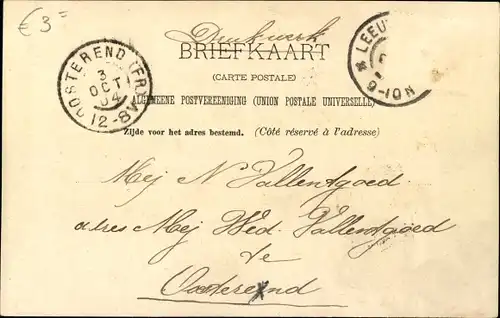 € 3=
Drukwerk
BRIEFKAART
(CARTE POSTALE)
ALGEMEENE POSTVEREENIGING (UNION POSTALE UNIVERSELLE)
Zijde voor het adres bestemd. (Côté réservé à l'adresse)
OOSTEREND (FR.)
3
OCT
04
12-8V
LEEU
9-10N
Mej N Vallentgoed
adres Mej Wed. Vallentgoed
te
Oosterend